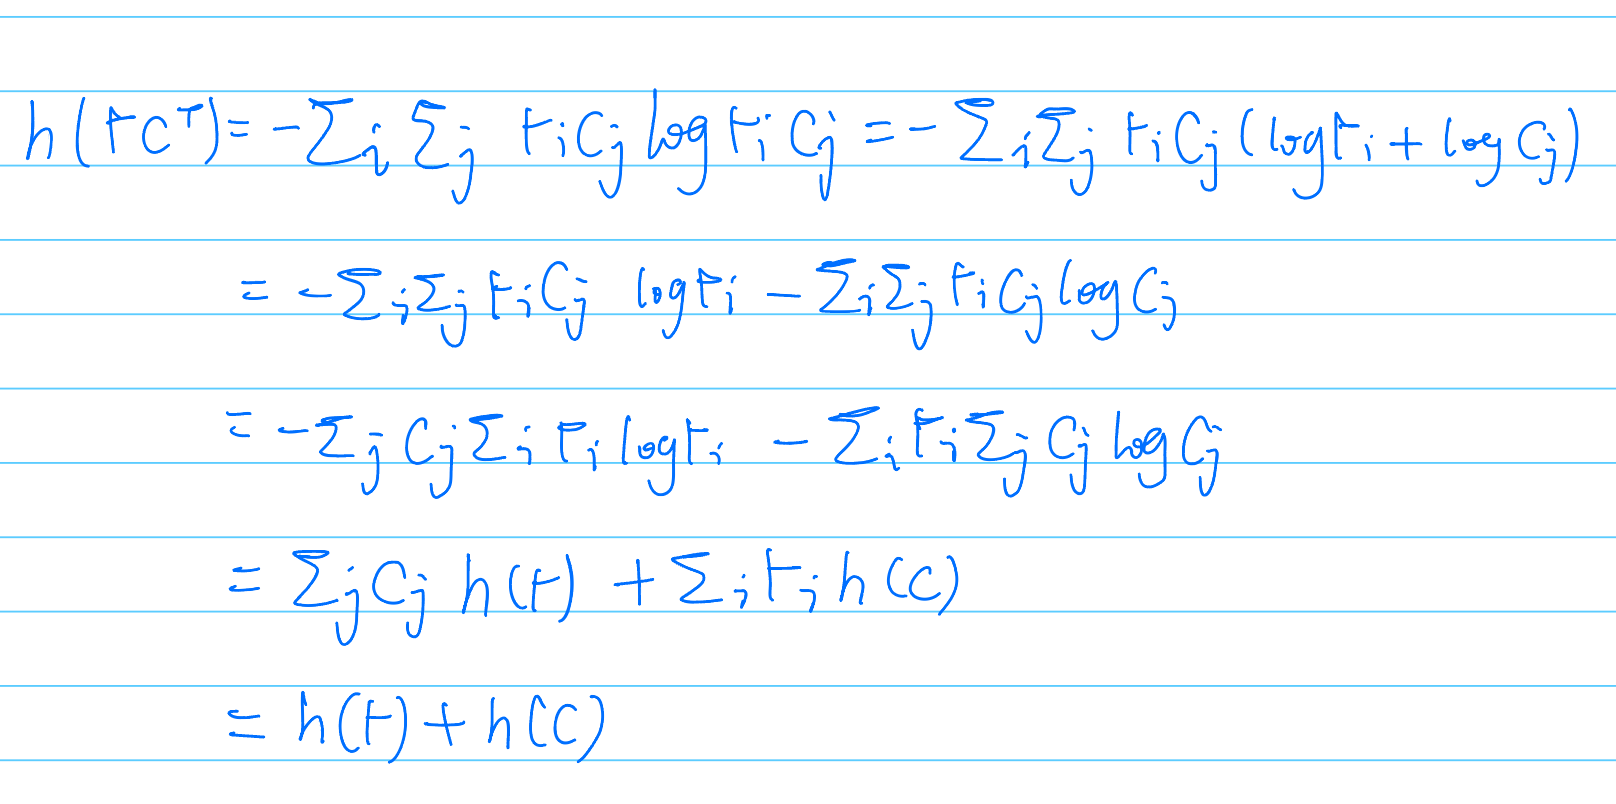 h(rcᵀ) = -Σᵢ Σⱼ rᵢcⱼ log rᵢ cⱼ = - ΣᵢΣⱼ rᵢcⱼ (log rᵢ + log cⱼ)
= -ΣᵢΣⱼ rᵢcⱼ log rᵢ - ΣᵢΣⱼ rᵢcⱼ log cⱼ
= -Σⱼ cⱼ Σᵢ rᵢ log rᵢ - Σᵢ rᵢ Σⱼ cⱼ log cⱼ
= Σⱼ cⱼ h(r) + Σᵢ rᵢ h(c)
= h(r) + h(c)